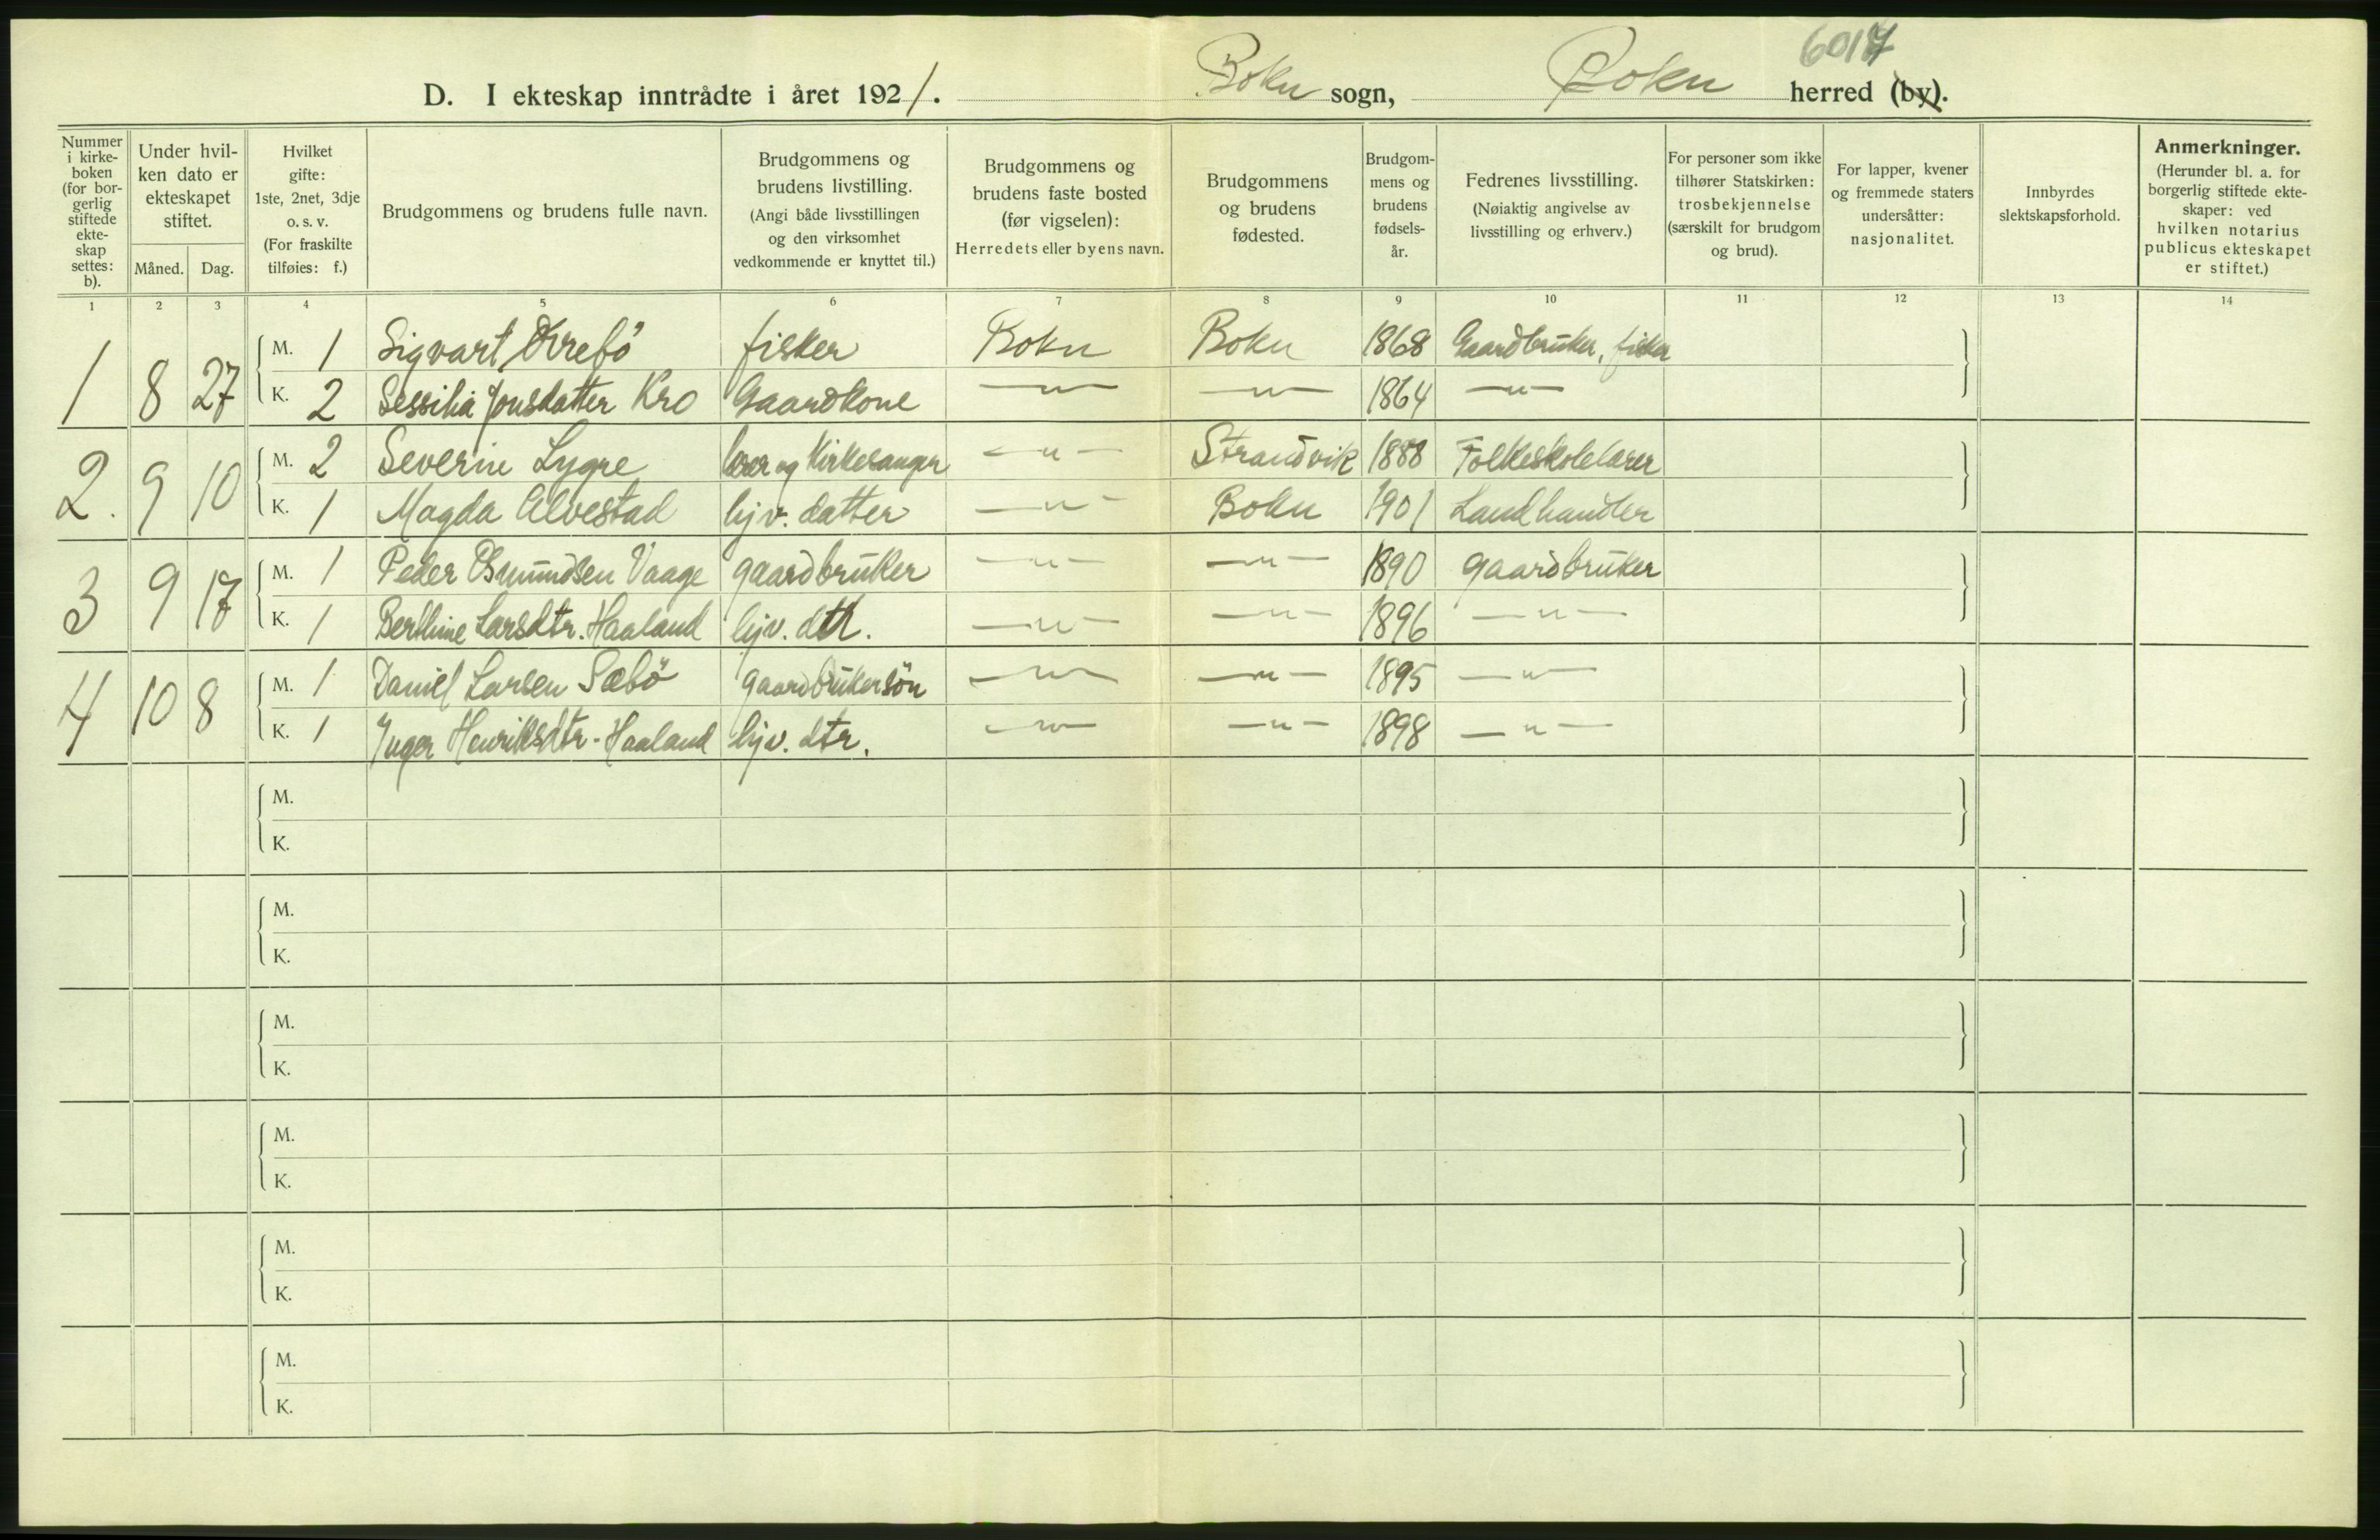 6017
D. I ekteskap inntrådte i året 1921. Bokn sogn, Bokn herred (by).
Nummer i kirkeboken (for borgerlig stiftede ekteskap settes: b).
Under hvilken dato er ekteskapet stiftet.
Måned. Dag.
Hvilket gifte: 1ste, 2net, 3dje o. s. v. (For fraskilte tilføies: f.)
Brudgommens og brudens fulle navn.
Brudgommens og brudens livstilling. (Angi både livsstillingen og den virksomhet vedkommende er knyttet til.)
Brudgommens og brudens faste bosted (før vigselen): Herredets eller byens navn.
Brudgommens og brudens fødested.
Brudgommens og brudens fødselsår.
Fedrenes livsstilling. (Nøiaktig angivelse av livsstilling og erhverv.)
For personer som ikke tilhører Statskirken: trosbekjennelse (særskilt for brudgom og brud).
For lapper, kvener og fremmede staters undersåtter: nasjonalitet.
Innbyrdes slektskapsforhold.
Anmerkninger. (Herunder bl. a. for borgerlig stiftede ekteskaper: ved hvilken notarius publicus ekteskapet er stiftet.)
1 2 3 4 5 6 7 8 9 10 11 12 13 14
1 8 27 M. 1 Sigvart Ørrebö fisker Bokn Bokn 1868 Gaardbruker, fisker
K. 2 Sessilia Jonsdatter Kro Gaardkone —"— —"— 1864 —"—
2. 9 10 M. 2 Severin Lygre lærer og Kirkesanger —"— Strandvik 1888 Folkeskolelærer
K. 1 Magda Alvestad hjv. datter —"— Bokn 1901 Landhandler
3 9 17 M. 1 Peder Osmundsen Vaage gaardbruker —"— —"— 1890 gaardbruker
K. 1 Berthine Larsdtr. Haaland hjv. dtr. —"— —"— 1896 —"—
4 10 8 M. 1 Daniel Larsen Sæbö gaardbrukersön —"— —"— 1895 —"—
K. 1 Inger Henriksdtr. Haaland hjv. dtr. —"— —"— 1898 —"—
M.
K.
M.
K.
M.
K.
M.
K.
M.
K.
M.
K.